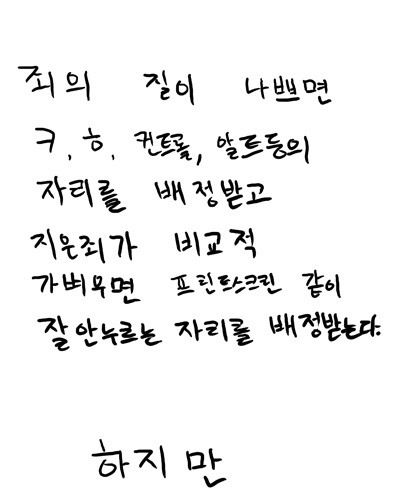 죄의 질이 나쁘면
ㅋ, ㅎ, 컨트롤, 알트등의
자리를 배정받고
지은죄가 비교적
가벼우면 프린트스크린 같이
잘안누르는 자리를 배정받는다.
하지만